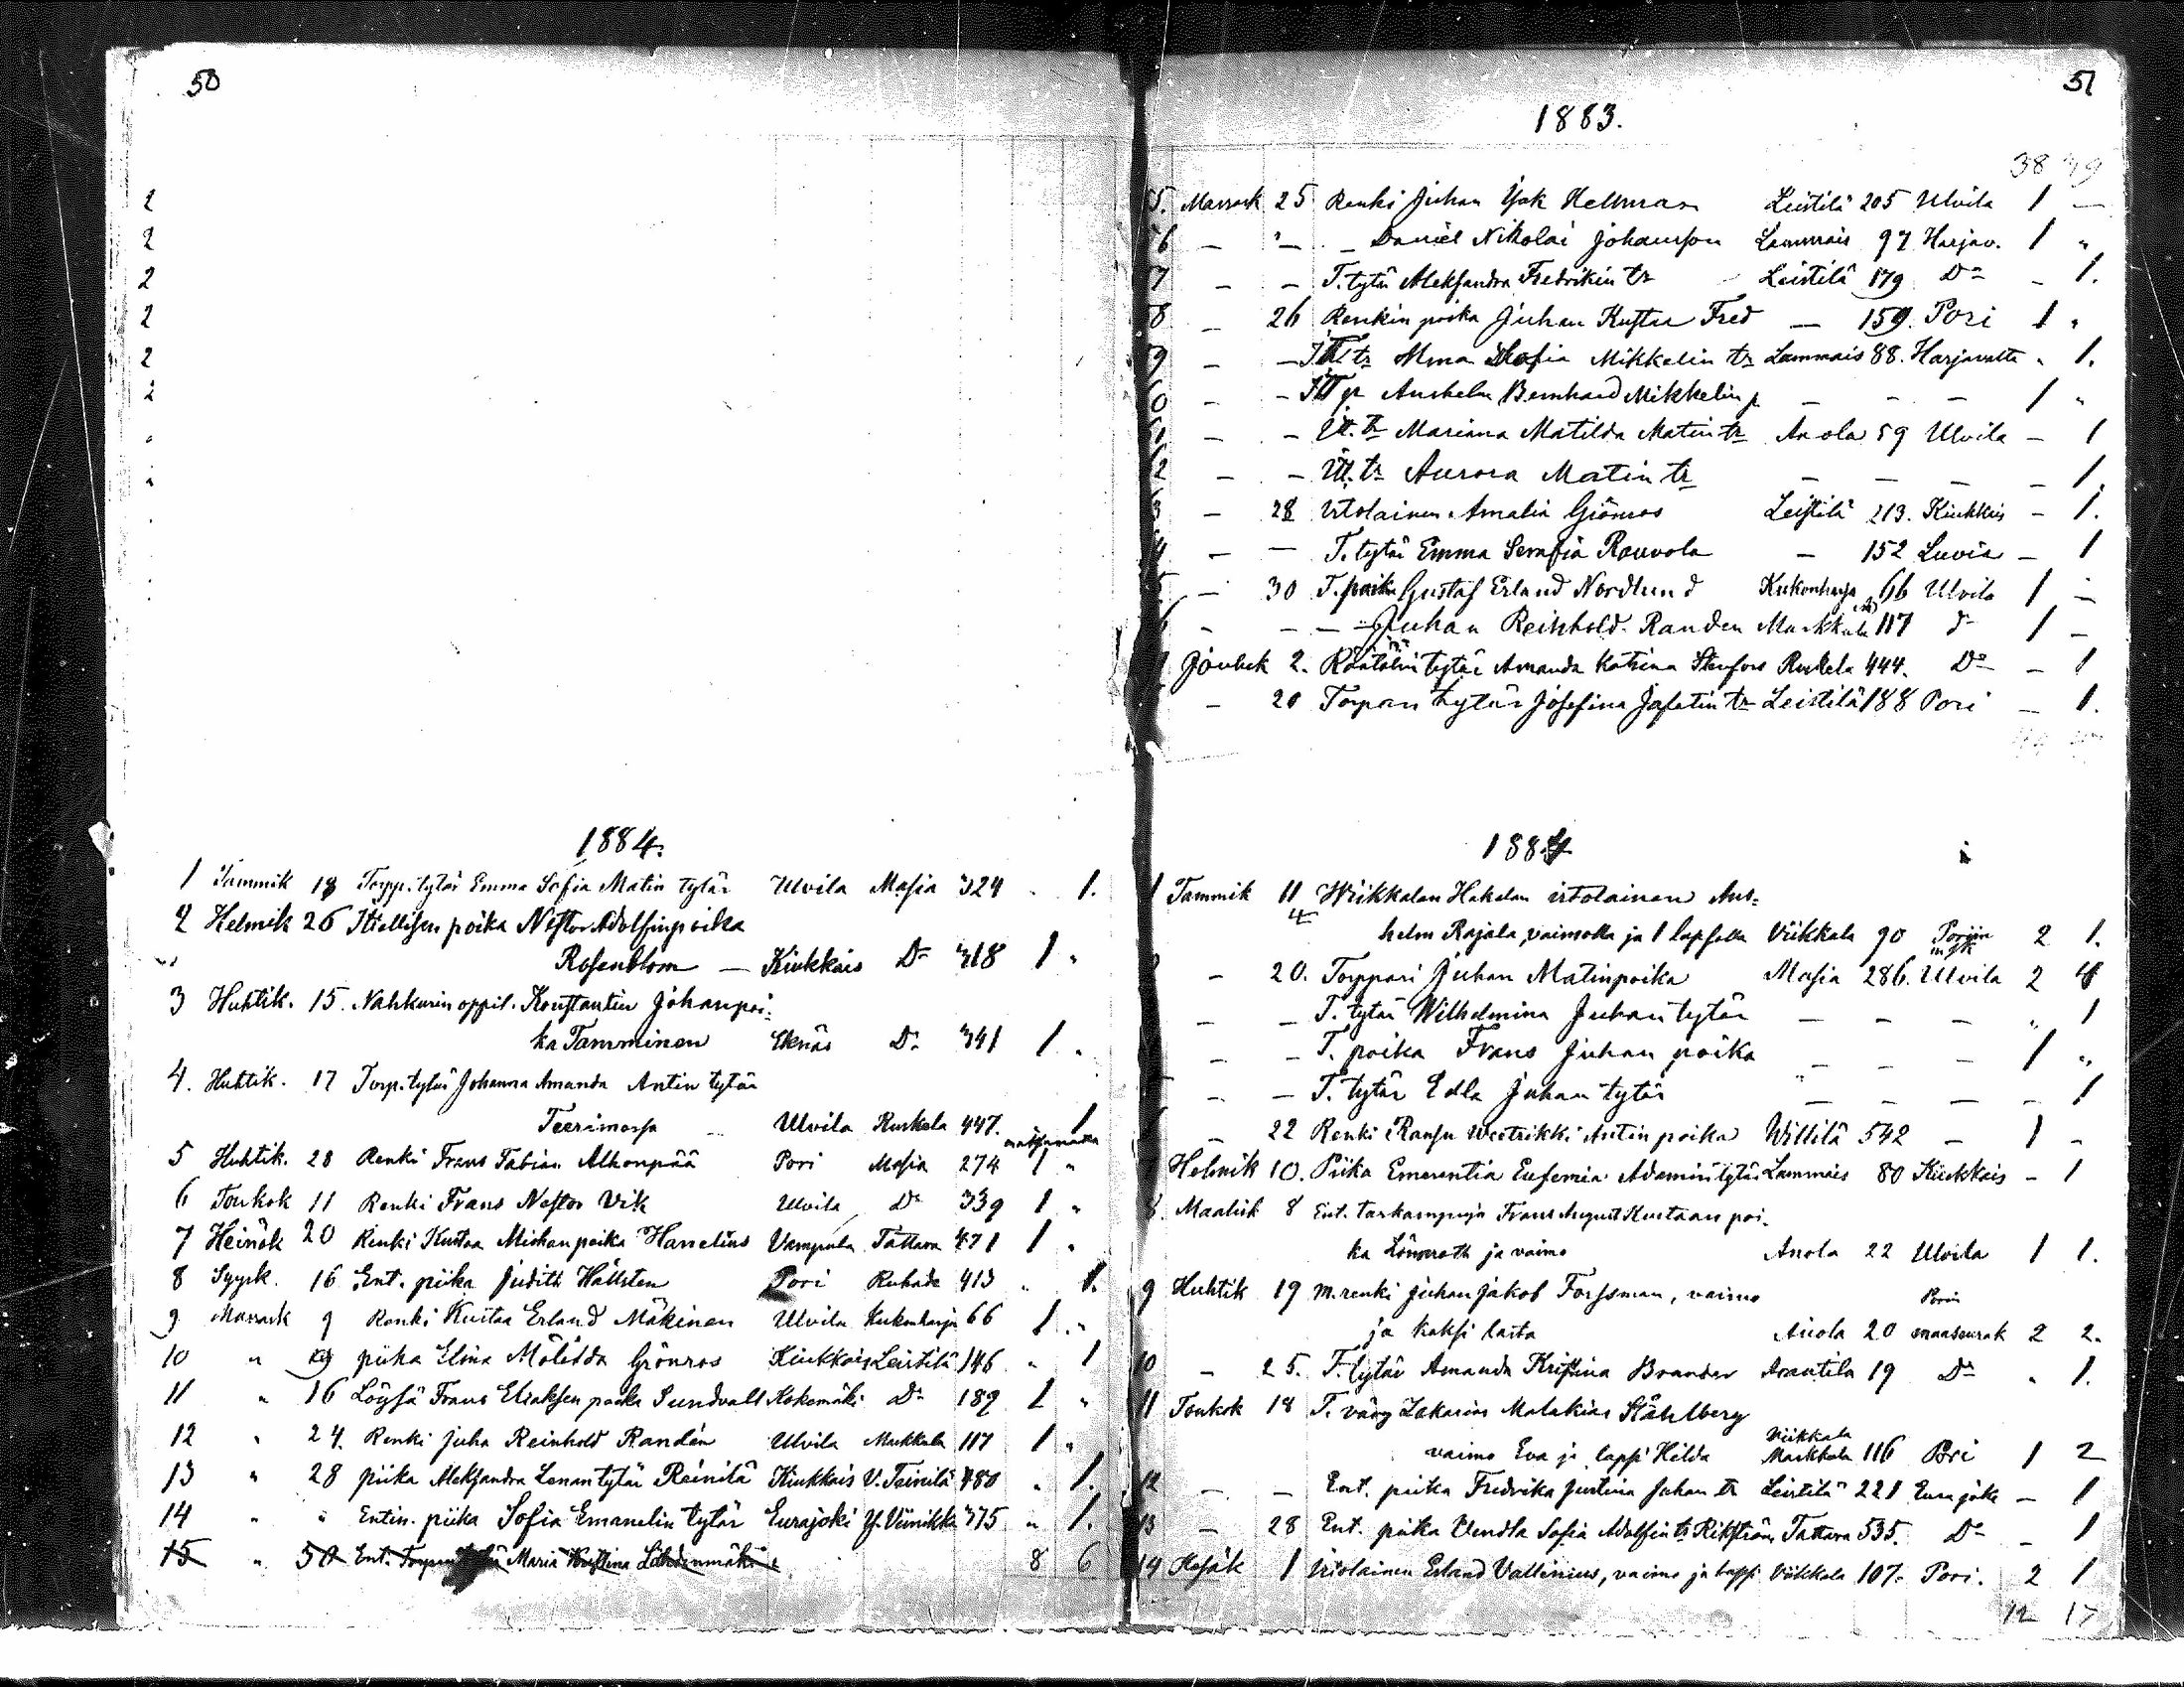 50
2
2
2
2
2
2
1884.
1 Tammik 18 Torpp. tytär Emma Sofia Matin tytär Ulvila Masia 324 " 1.
2 Helmik 26 Itsellisen poika Nestor Adolfinpoika
Rosenblom — Kiukkais Do 318 1 "
3 Huhtik. 15. Nahkurin oppil. Konstantin Johanpoi=
ka Tamminen Eknäs Do 341 1 "
4. Huhtik. 17 Torp. tytär Johanna Amanda Antin tytär
Teerimossa Ulvila Ruskela 447. 1
5 Huhtik. 28 Renki Frans Fabian Alhonpää Pori Masia 274 1 "
6 Toukok 11 Renki Frans Nestor Vik Ulvila Do 339 1 "
7 Heinäk 20 Renki Kustaa Miskan poika Hanelius Vampula Tattara 471 1 "
8 Syysk. 16 Ent. piika Judith Hällsten Pori 413 " 1.
9 Marrask 9 Renki Kustaa Erland Mäkinen Ulvila Kukonharja 66 1 "
10 " piika Elina Mölitda Grönros Kiukkais Leistilä 146 " 1
11 " 16 Löysä Frans Eliaksen poika Sundvall Kokemäki Do 189 1 "
12 " 24. Renki Juha Reinhold Randén Ulvila Markkula 117 1 "
13 " 28 piika Aleksandra Lenan tytär Reinilä Kiukkais V. Teinilä 480 " 1.
14 " " Entin. piika Sofia Emanuelin tytär Eurajoki Y. Viinikka 375 " 1.
15 " 30 Ent. Maria Kristina Lähdenmäki 8 6
51
1883.
38 39
5. Marrask 25 Renki Juhan Isak Hellman Leistilä 205 Ulvila 1 —
6 — "— — Daniel Nikolai Johansson Lammais 97 Harjav. 1 "
7 — — T. tytär Aleksandra Fredrikin tr Leistilä 179 Do — 1.
8 — 26 Renkin poika Juhan Kustaa Fred — 159. Pori 1 "
9 — — It. tr Alma Sofia Mikkelin tr Lammais 88. Harjavalta " 1.
0 — — It p Anshelm Bernhard Mikkelin p — — — 1 "
— — It. tr Mariana Matilda Matin tr Anola 59 Ulvila — 1
2 — — It. tr Aurora Matin tr — — — — 1.
3 — 28 Irtolainen Amalia Grönroos Leistilä 213. Kiukkais — 1.
4 — — T. tytär Emma Serafia Rouvola — 152 Luvia — 1
5 — 30 T. poika Gustaf Erland Nordlund Kukonharja 66 Ulvila 1 —
— — — Juhan Reinhold Randen Markkula 117 do 1 —
Jouluk 2. Räätälin tytär Amanda Katrina Stenfors Ruskela 444. Do — 1
— 20 Torpan tytär Josefina Jafetin tr Leistilä 188 Pori — 1.
1884
1 Tammik 11 Wiikkalan Hakalan irtolainen Ans=
helm Rajala, vaimolla ja 1 lapsella Viikkala 90 Poriin 2 1.
— 20. Torppari Juhan Matinpoika Masia 286. Ulvila 2
— — T. tytär Wilhelmina Juhan tytär — — — " 1
— — T. poika Frans Juhan poika — — — 1 "
— — T. tytär Edla Juhan tytär — — — — 1
— 22 Renki Ransu Weetrikki Antin poika Willilä 542 — 1 —
Helmik 10. Piika Emerentia Eufemia Adamin tytär Lammais 80 Kiukkais — 1
8. Maalisk 8 Ent. tarkampuja Frans August Kustaan poi-
ka Lönnroth ja vaimo Anola 22 Ulvila 1 1.
9 Huhtik 19 m. renki Juhan Jakob Forssman, vaimo Porin
ja kaksi lasta Anola 20 maaseurak 2 2.
10 — 25. T. tytär Amanda Kristina Brander Arantila 19 Do " 1.
11 Toukok 18 T. väny Zakarias Malakias Ståhlberg
vaimo Eva ja lapsi Hilda Viikkala Markkula 116 Pori 1 2
12 — — Ent. piika Fredrika Justina Juhan tr Leistilä 221 Eurajoki — 1
13 — 28 Ent. piika Vendla Sofia Adolfin tr Rikström Tattara 535. Do — 1
14 Kesäk 1 Irtolainen Erland Vallenius, vaimo ja lapsi Viikkala 107. Pori. 2 1
12 17